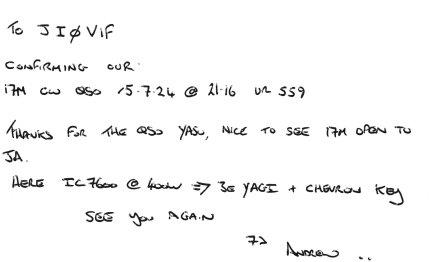 To JIØVIF
CONFIRMING OUR:
17M CW QSO 15.7.24 @ 21:16 UR 559
THANKS FOR THE QSO YASU, NICE TO SEE 17M OPEN TO
JA.
HERE IC7600 @ 400W => 3E YAGI + CHEVRON KEY
SEE YOU AGAIN
73
ANDREW ..